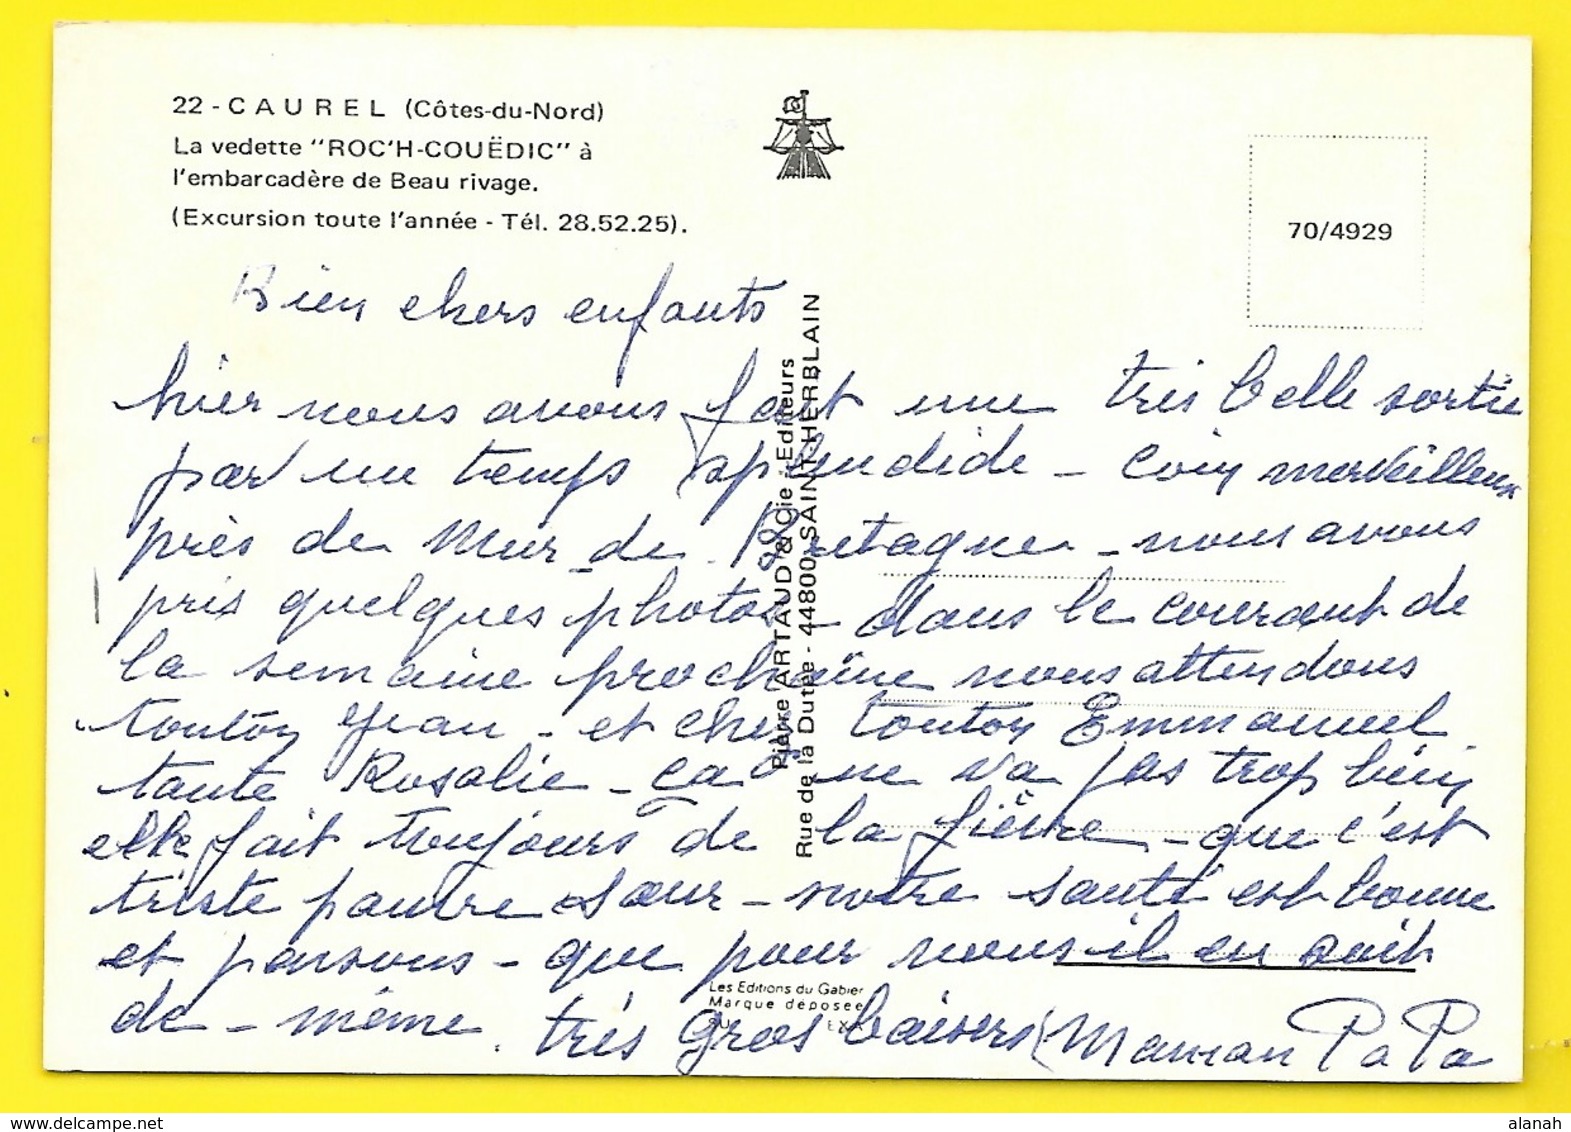 22 - CAUREL (Côtes-du-Nord)
La vedette "ROC'H-COUËDIC" à
l'embarcadère de Beau rivage.
(Excursion toute l'année - Tél. 28.52.25).
70/4929
Pierre ARTAUD & Cie - Editeurs
Rue de la Dutée - 44800 SAINT-HERBLAIN
Bien chers enfants
hier nous avons fait une très belle sortie
par un temps splendide - coin merveilleux
près de Mur-de-Bretagne - nous avons
pris quelques photos - dans le courant de
la semaine prochaine nous attendons
tonton Jean - et chez tonton Emmanuel
tante Rosalie - ça ne va pas trop bien
elle fait toujours de la fièvre - que c'est
triste pauvre sœur - notre santé est bonne
et pensons - que pour vous il en soit
de - même. très gros baisers Maman PaPa
Les Editions du Gabier
Marque déposée
alanah